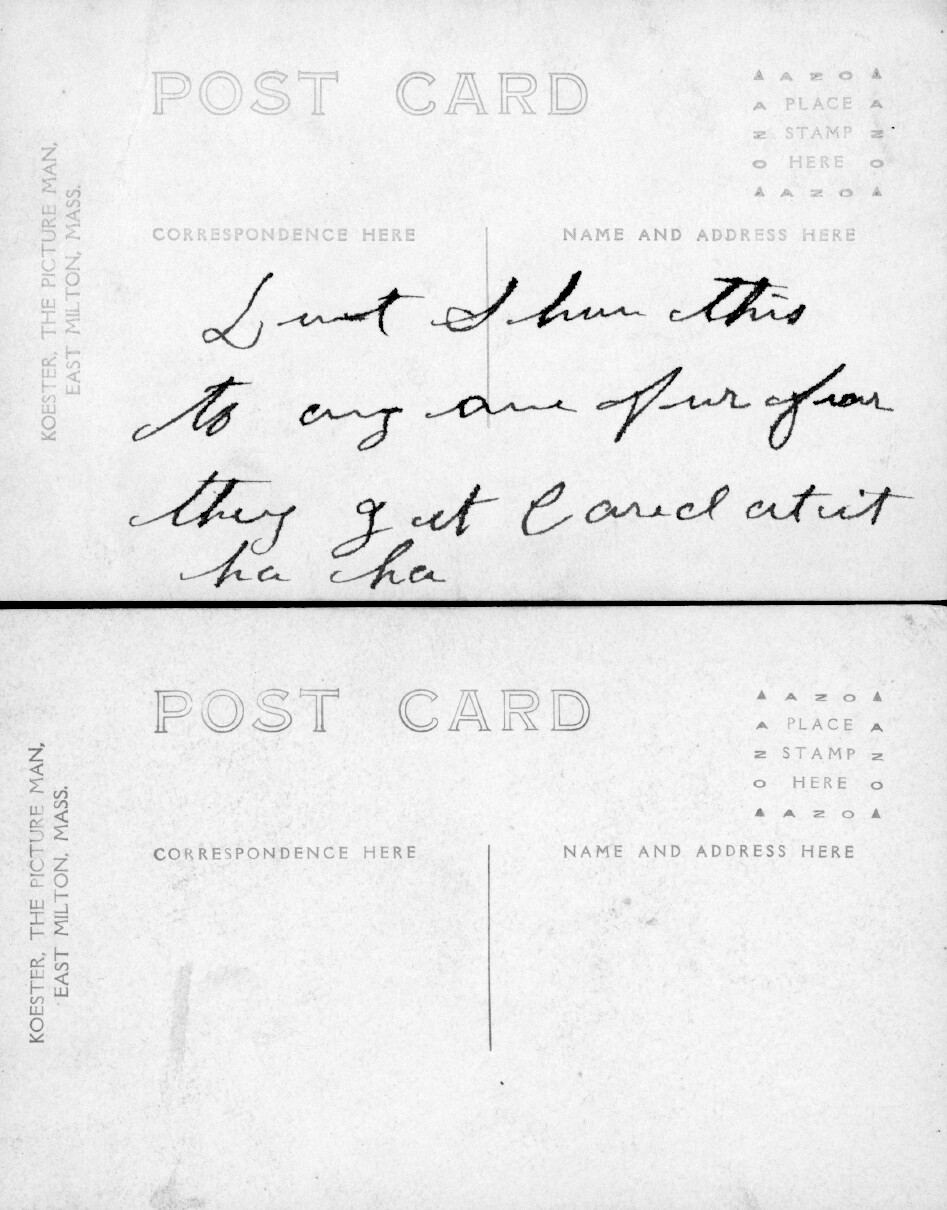 POST CARD
▲ A Z O ▲
A PLACE A
Z STAMP Z
O HERE O
▲ A Z O ▲
KOESTER, THE PICTURE MAN,
EAST MILTON, MASS.
CORRESPONDENCE HERE
NAME AND ADDRESS HERE
Dont Show this
to any one fur fear
they get Cared at it
ha ha
POST CARD
▲ A Z O ▲
A PLACE A
Z STAMP Z
O HERE O
▲ A Z O ▲
KOESTER, THE PICTURE MAN,
EAST MILTON, MASS.
CORRESPONDENCE HERE
NAME AND ADDRESS HERE